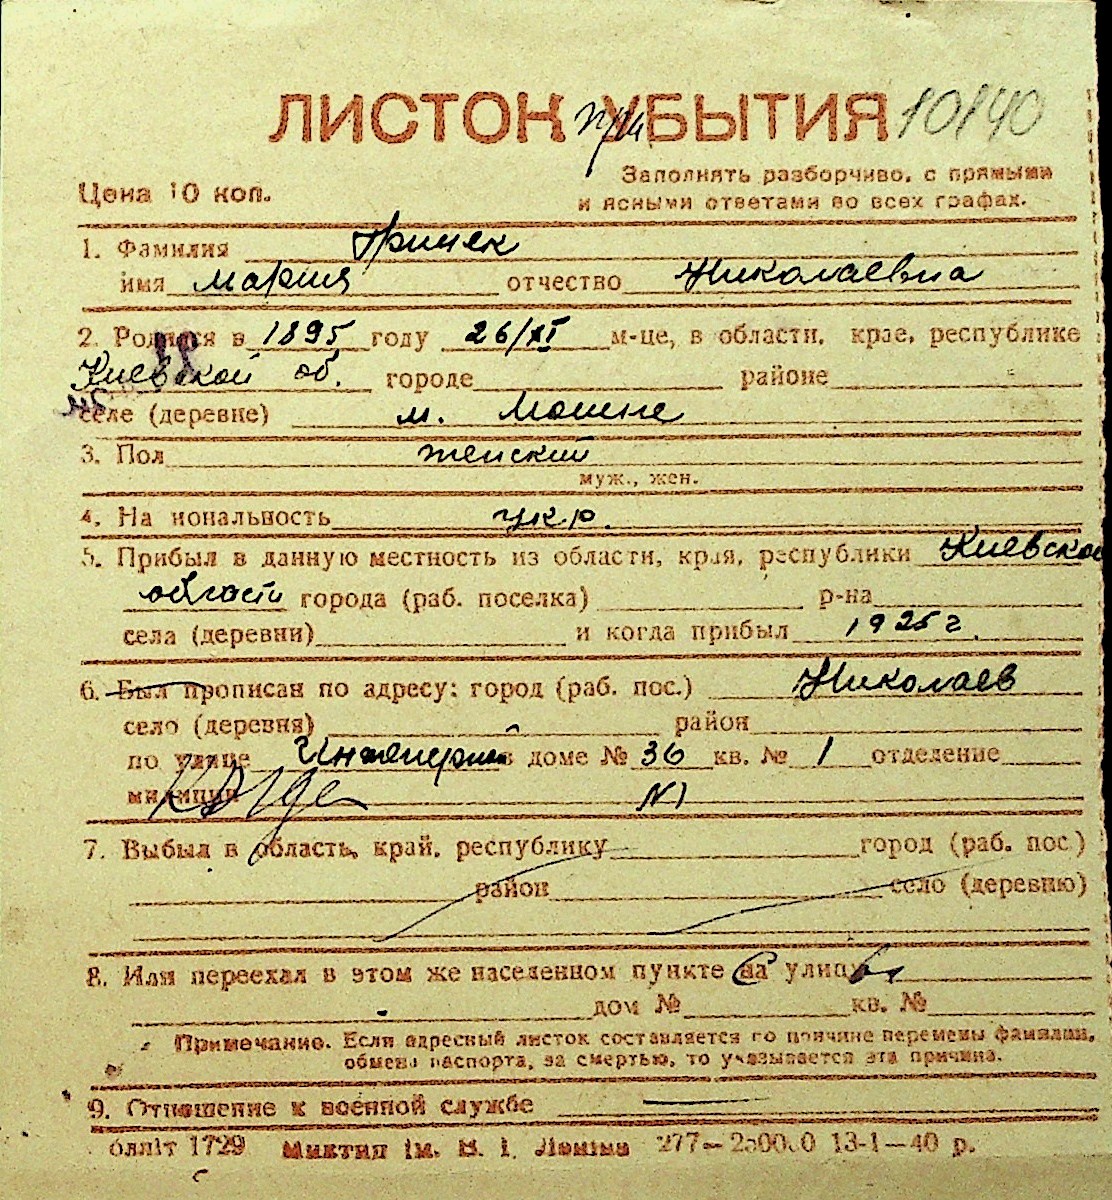 ЛИСТОК УБЫТИЯ 10/40
Цена 10 коп.
Заполнять разборчиво, с прямыми
и ясными ответами во всех графах.
1. Фамилия Гринек
имя Мария отчество Николаевна
2. Родился в 1895 году 26/XI м-це, в области, крае, республике
Киевской об. городе районе
селе (деревне) м. Мошне
3. Пол женский
муж., жен.
4. Национальность укр.
5. Прибыл в данную местность из области, края, республики Киевской
области города (раб. поселка) р-на
села (деревни) и когда прибыл 1925 г.
6. Был прописан по адресу: город (раб. пос.) Николаев
село (деревня) район
по улице в доме № 36 кв. № 1 отделение
милиции N1
7. Выбыл в область, край, республику город (раб. пос.)
район село (деревню)
8. Или переехал в этом же населенном пункте на улицу
дом № кв. №
Примечание. Если адресный листок составляется по причине перемены фамилии,
обмена паспорта, за смертью, то указывается эта причина.
9. Отношение к военной службе —
блліт 1729 Миктип ім. В. І. Леніна 277—250000 13-1—40 р.